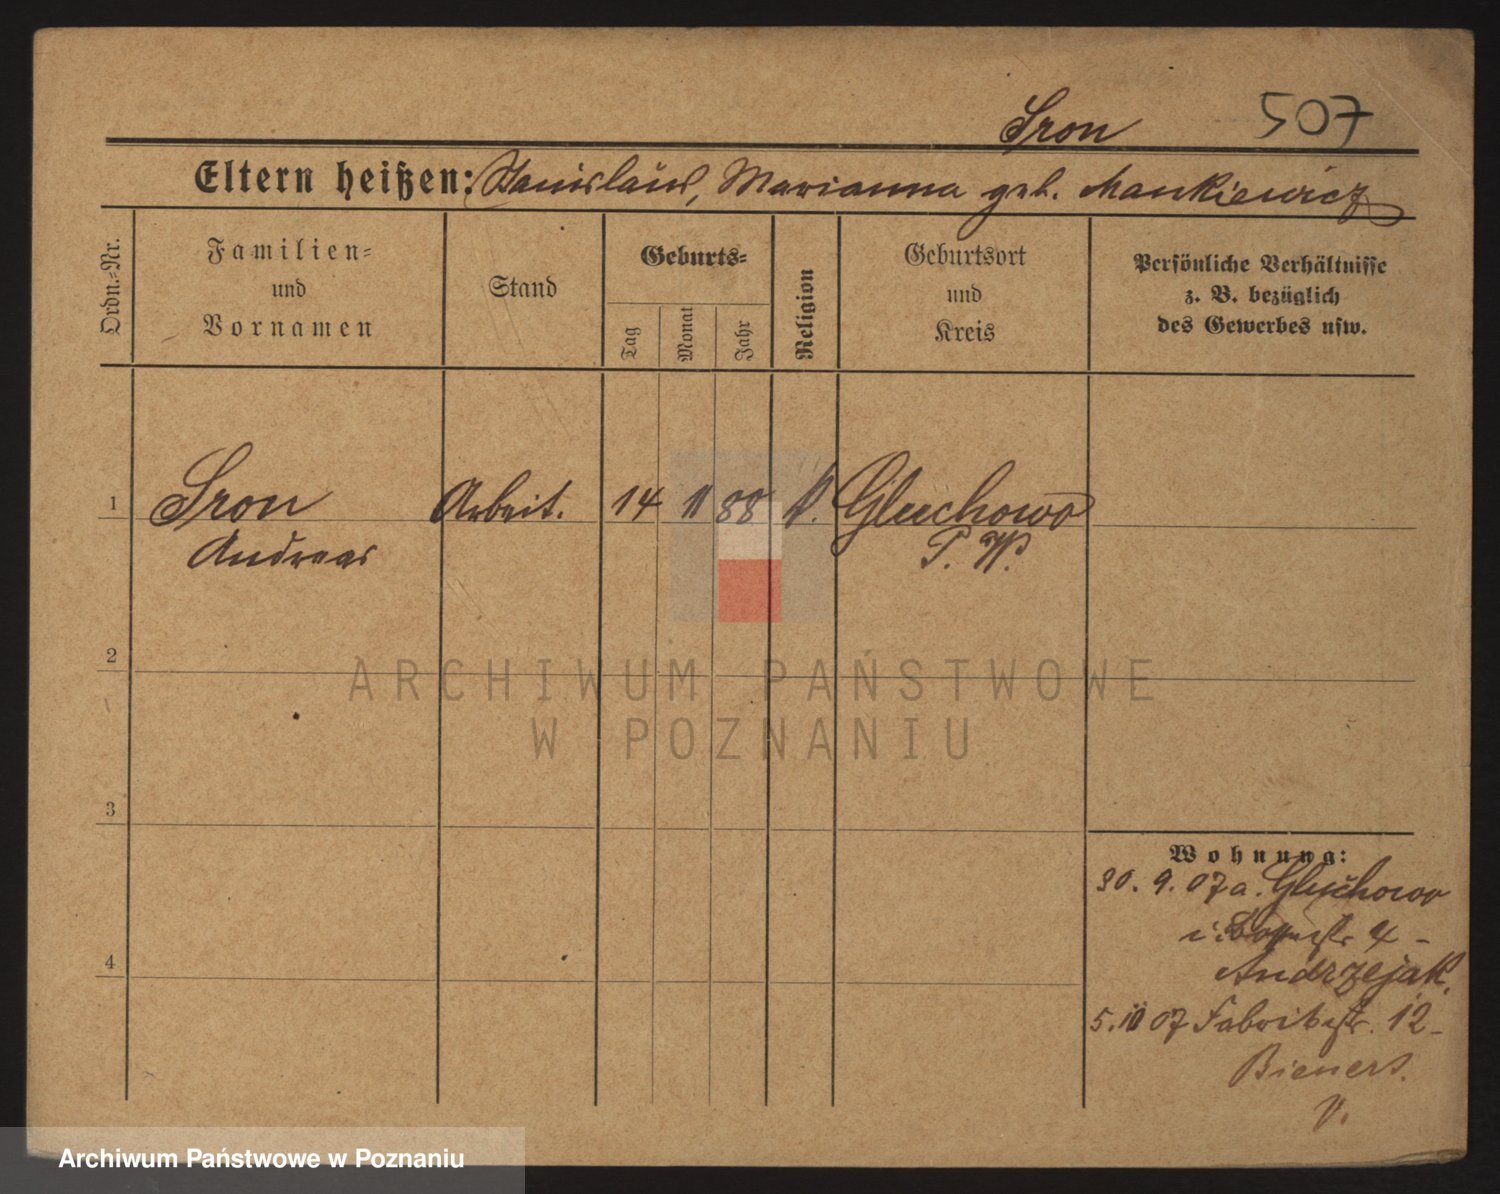 Sron 507
Eltern heißen: Stanislaus, Marianna geb. Mankiewicz
Ordn.-Nr.
Familien-
und
Vornamen
Stand
Geburts-
Tag
Monat
Jahr
Religion
Geburtsort
und
Kreis
Persönliche Verhältnisse
z. B. bezüglich
des Gewerbes usw.
1 Sron Arbeit. 14 11 88 k. Gluchowo
Andreas P. W.
2
3
4
Wohnung:
30. 9. 07 a. Gluchowo
4 -
Andrzejak.
5. 10 07 Fabrikstr. 12-
Bieners.
V.
ARCHIWUM PAŃSTWOWE
W POZNANIU
Archiwum Państwowe w Poznaniu